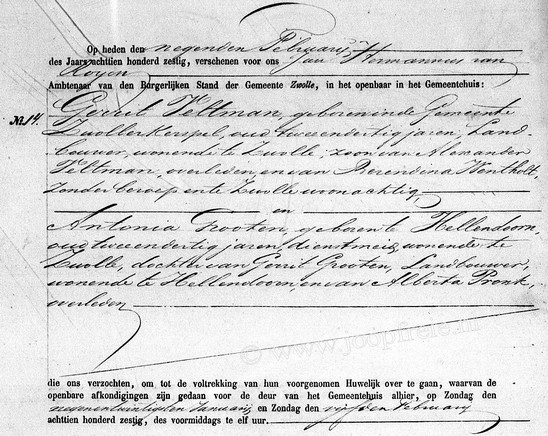 Op heden den negenden February
des Jaars achttien honderd zestig, verschenen voor ons Jan Hermannus van
Royen
Ambtenaar van den Burgerlijken Stand der Gemeente Zwolle, in het openbaar in het Gemeentehuis:
No. 14. Gerrit Veltman, geboren in de Gemeente
Zwollerkerspel, oud tweeendertig jaren, Land-
bouwer, wonende te Zwolle, zoon van Alexander
Veltman, overleden, en van Berendina Wentholt,
zonder beroep en te Zwolle woonachtig,
en
Antonia Grooten, geboren te Hellendoorn,
oud tweeendertig jaren, dienstmeid, wonende te
Zwolle, dochter van Gerrit Grooten, Landbouwer,
wonende te Hellendoorn, en van Alberta Pronk,
overleden
© www.joopheie.nl
die ons verzochten, om tot de voltrekking van hun voorgenomen Huwelijk over te gaan, waarvan de
openbare afkondigingen zijn gedaan voor de deur van het Gemeentehuis alhier, op Zondag den
negenentwintigsten January en Zondag den vijfden February
achttien honderd zestig, des voormiddags te elf uur.